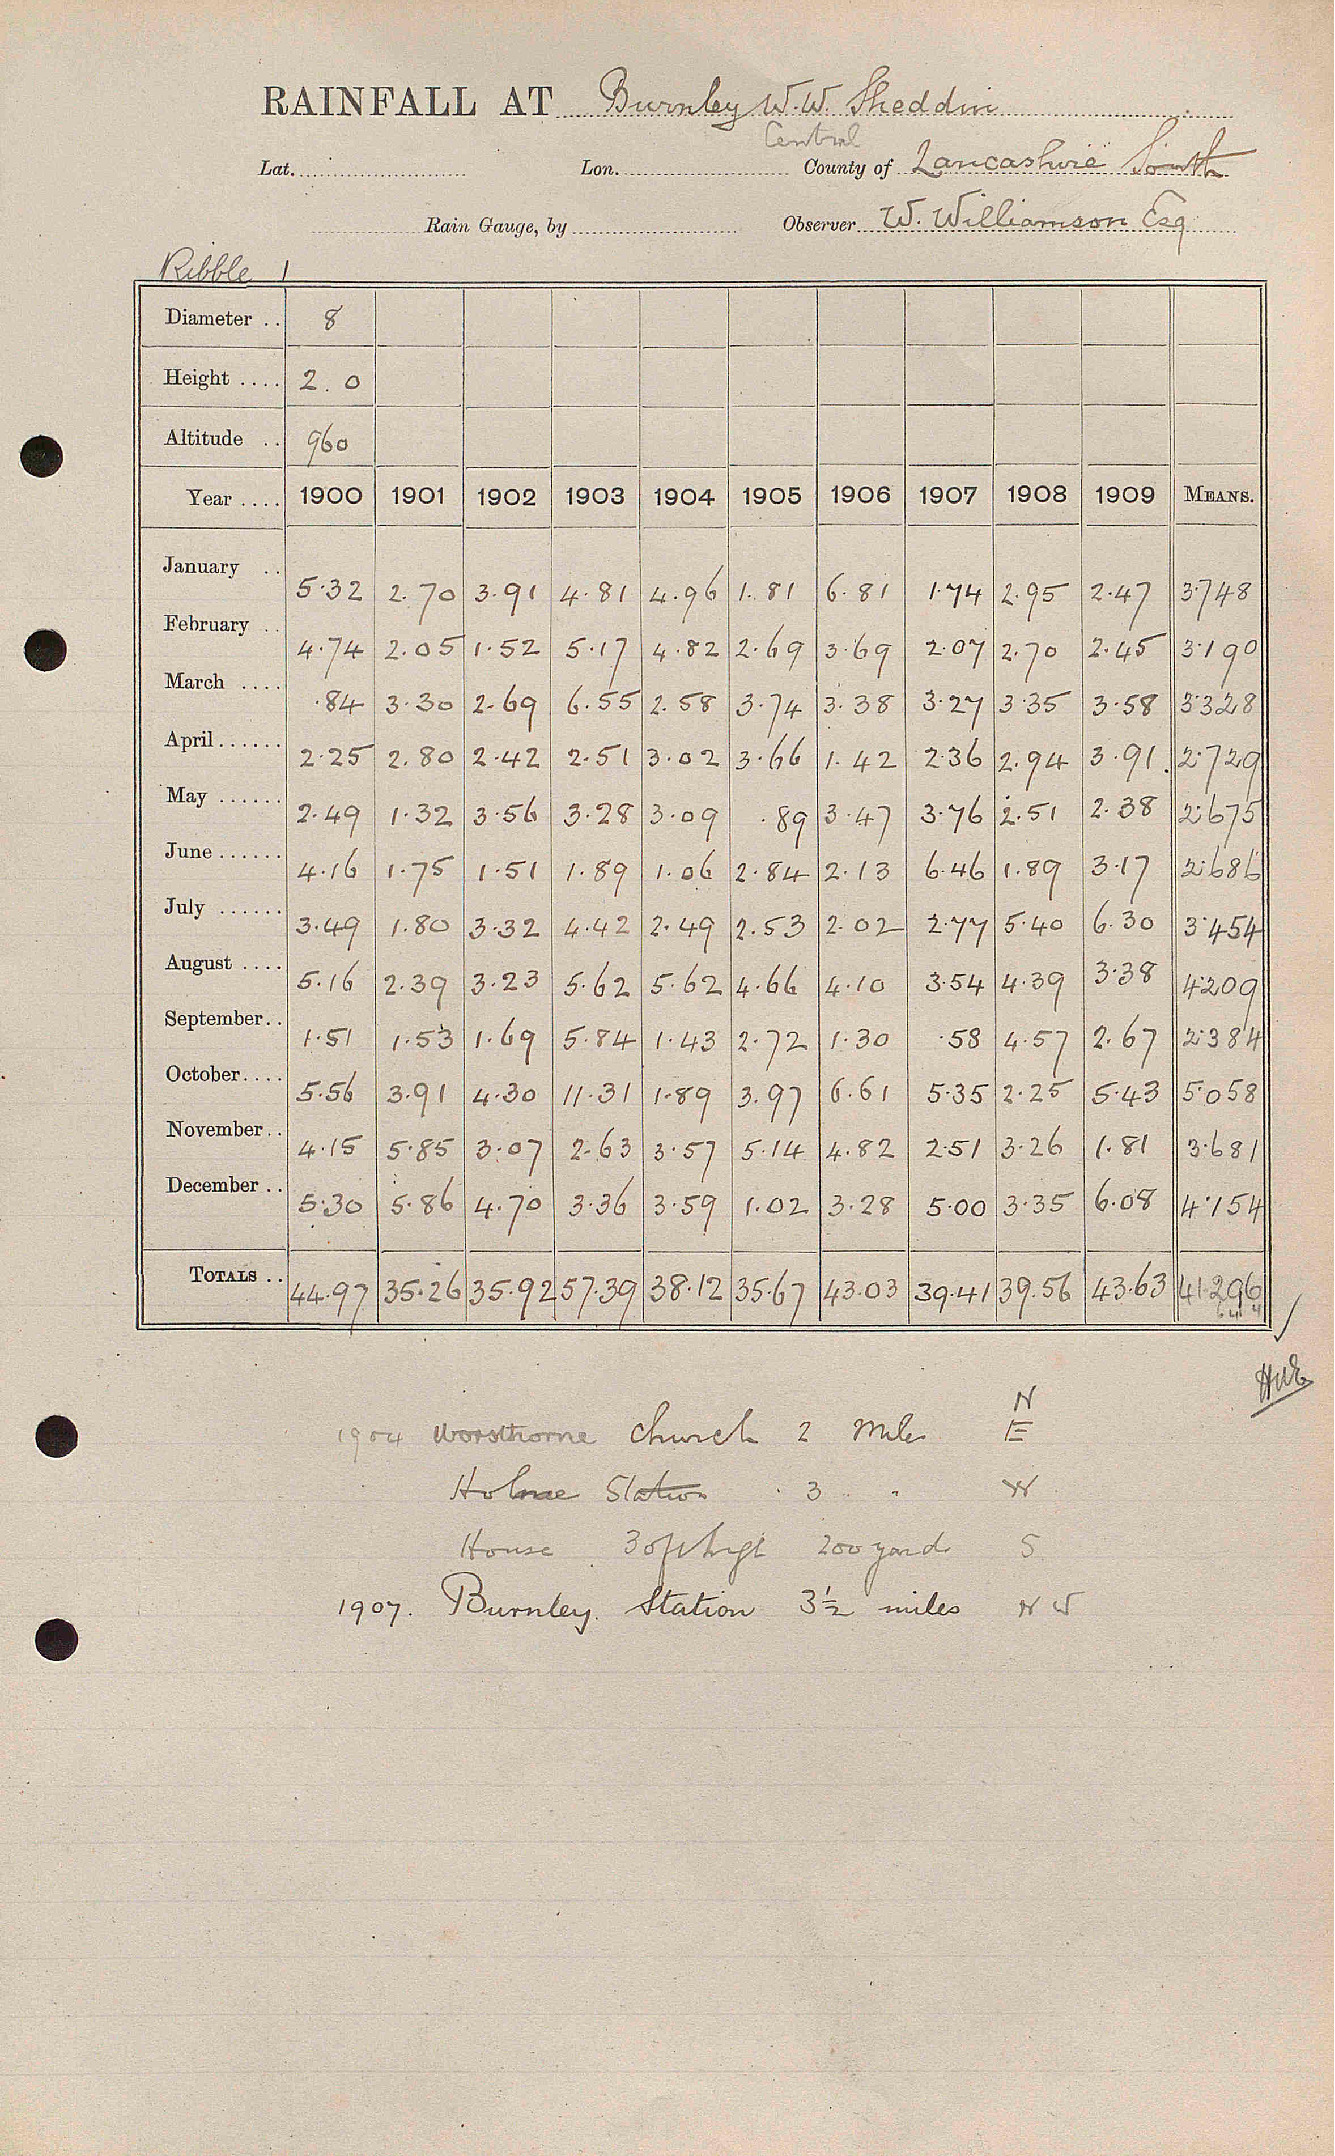 RAINFALL AT Burnley W.W. Sheddin
Central
Lat. Lon. County of Lancashire South
Rain Gauge, by Observer W. Williamson Esq
Ribble 1
Diameter .. 8
Height .... 2.0
Altitude .. 960
Year .... 1900 1901 1902 1903 1904 1905 1906 1907 1908 1909 MEANS.
January .. 5.32 2.70 3.91 4.81 4.96 1.81 6.81 1.74 2.95 2.47 3.748
February .. 4.74 2.05 1.52 5.17 4.82 2.69 3.69 2.07 2.70 2.45 3.190
March .... .84 3.30 2.69 6.55 2.58 3.74 3.38 3.27 3.35 3.58 3.328
April...... 2.25 2.80 2.42 2.51 3.02 3.66 1.42 2.36 2.94 3.91 2.729
May ...... 2.49 1.32 3.56 3.28 3.09 .89 3.47 3.76 2.51 2.38 2.675
June...... 4.16 1.75 1.51 1.89 1.06 2.84 2.13 6.46 1.89 3.17 2.686
July ...... 3.49 1.80 3.32 4.42 2.49 2.53 2.02 2.77 5.40 6.30 3.454
August .... 5.16 2.39 3.23 5.62 5.62 4.66 4.10 3.54 4.39 3.38 4.209
September.. 1.51 1.53 1.69 5.84 1.43 2.72 1.30 .58 4.57 2.67 2.384
October.... 5.56 3.91 4.30 11.31 1.89 3.97 6.61 5.35 2.25 5.43 5.058
November.. 4.15 5.85 3.07 2.63 3.57 5.14 4.82 2.51 3.26 1.81 3.681
December .. 5.30 5.86 4.70 3.36 3.59 1.02 3.28 5.00 3.35 6.08 4.154
TOTALS .. 44.97 35.26 35.92 57.39 38.12 35.67 43.03 39.41 39.56 43.63 41.296
N
1904 Worsthorne Church 2 Mile E
Holme Station 3 " W
House 30 ft high 200 yards S
1907. Burnley Station 3½ miles N W